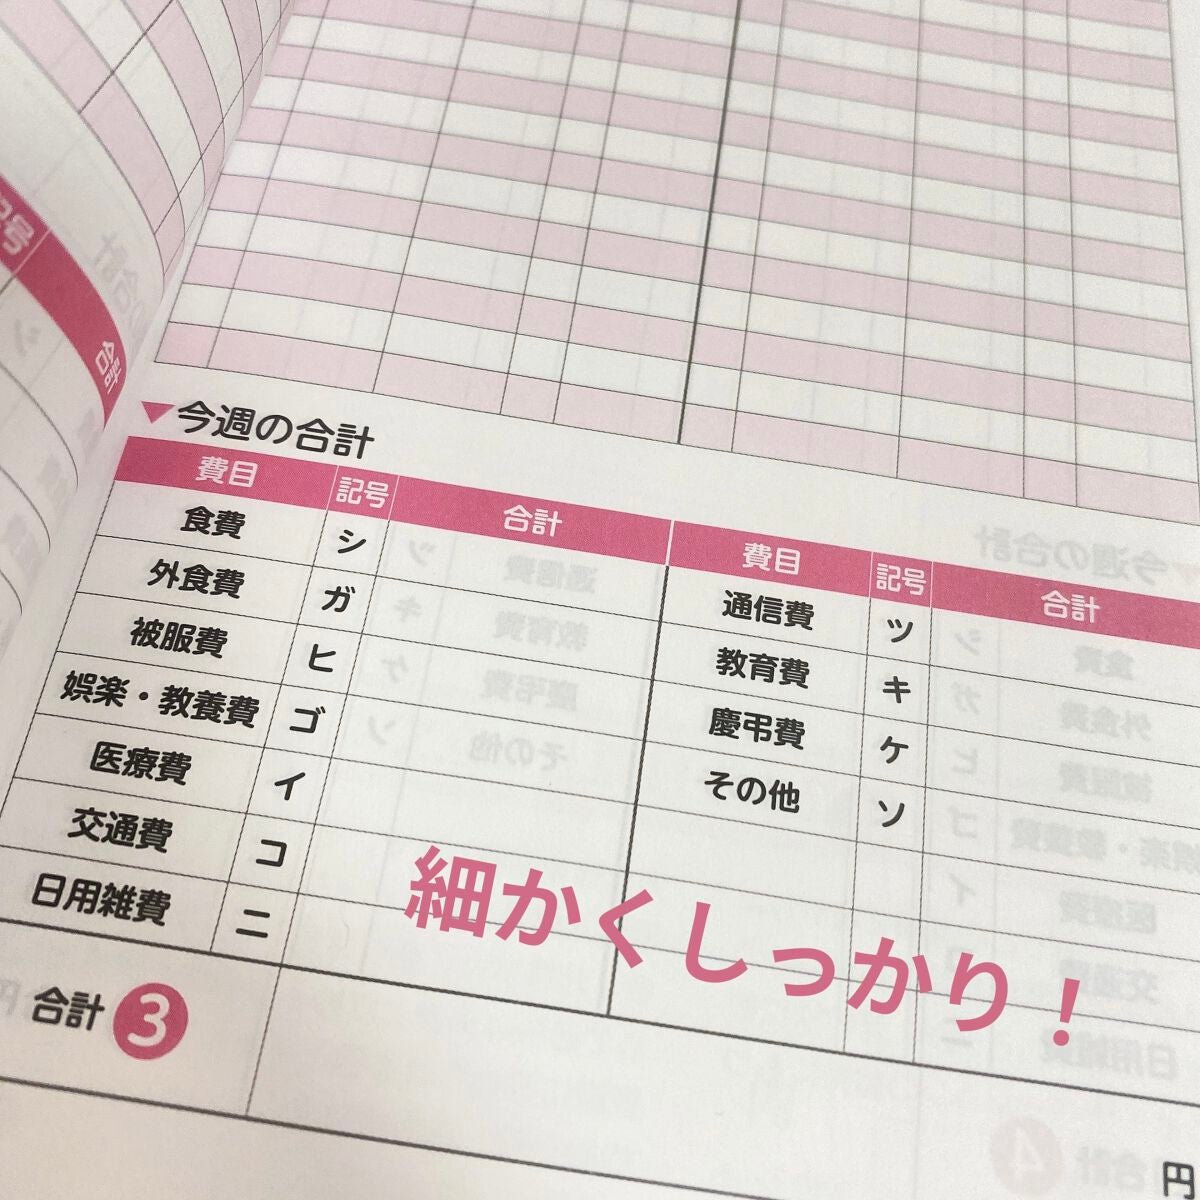 記号
合計
▼今週の合計
費目 記号 合計 費目 記号 合計
食費 シ 通信費 ツ
外食費 ガ 教育費 キ
被服費 ヒ 慶弔費 ケ
娯楽・教養費 ゴ その他 ソ
医療費 イ
交通費 コ
日用雑費 ニ
合計 3
円
細かくしっかり！